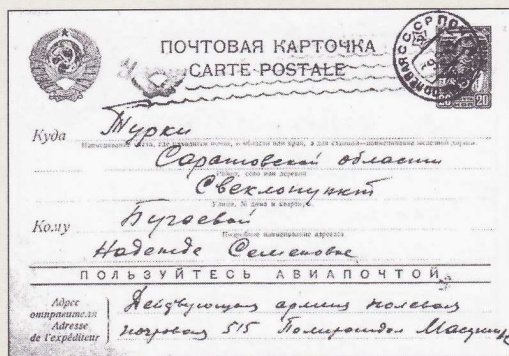 ПОЧТОВАЯ КАРТОЧКА
CARTE POSTALE
20 20
Куда Турки
Наименование места, где находится почта, и области или края, а для станций—наименование железной дороги
Саратовской области
Район, село или деревня
Свеклопункт
Улица, № дома и кварт.
Кому Бугаевой
Подробное наименование адресата
Надежде Семеновне
ПОЛЬЗУЙТЕСЬ АВИАПОЧТОЙ
Адрес отправителя
Adresse de l'expéditeur
Действующая армия полевая
почтовая 515